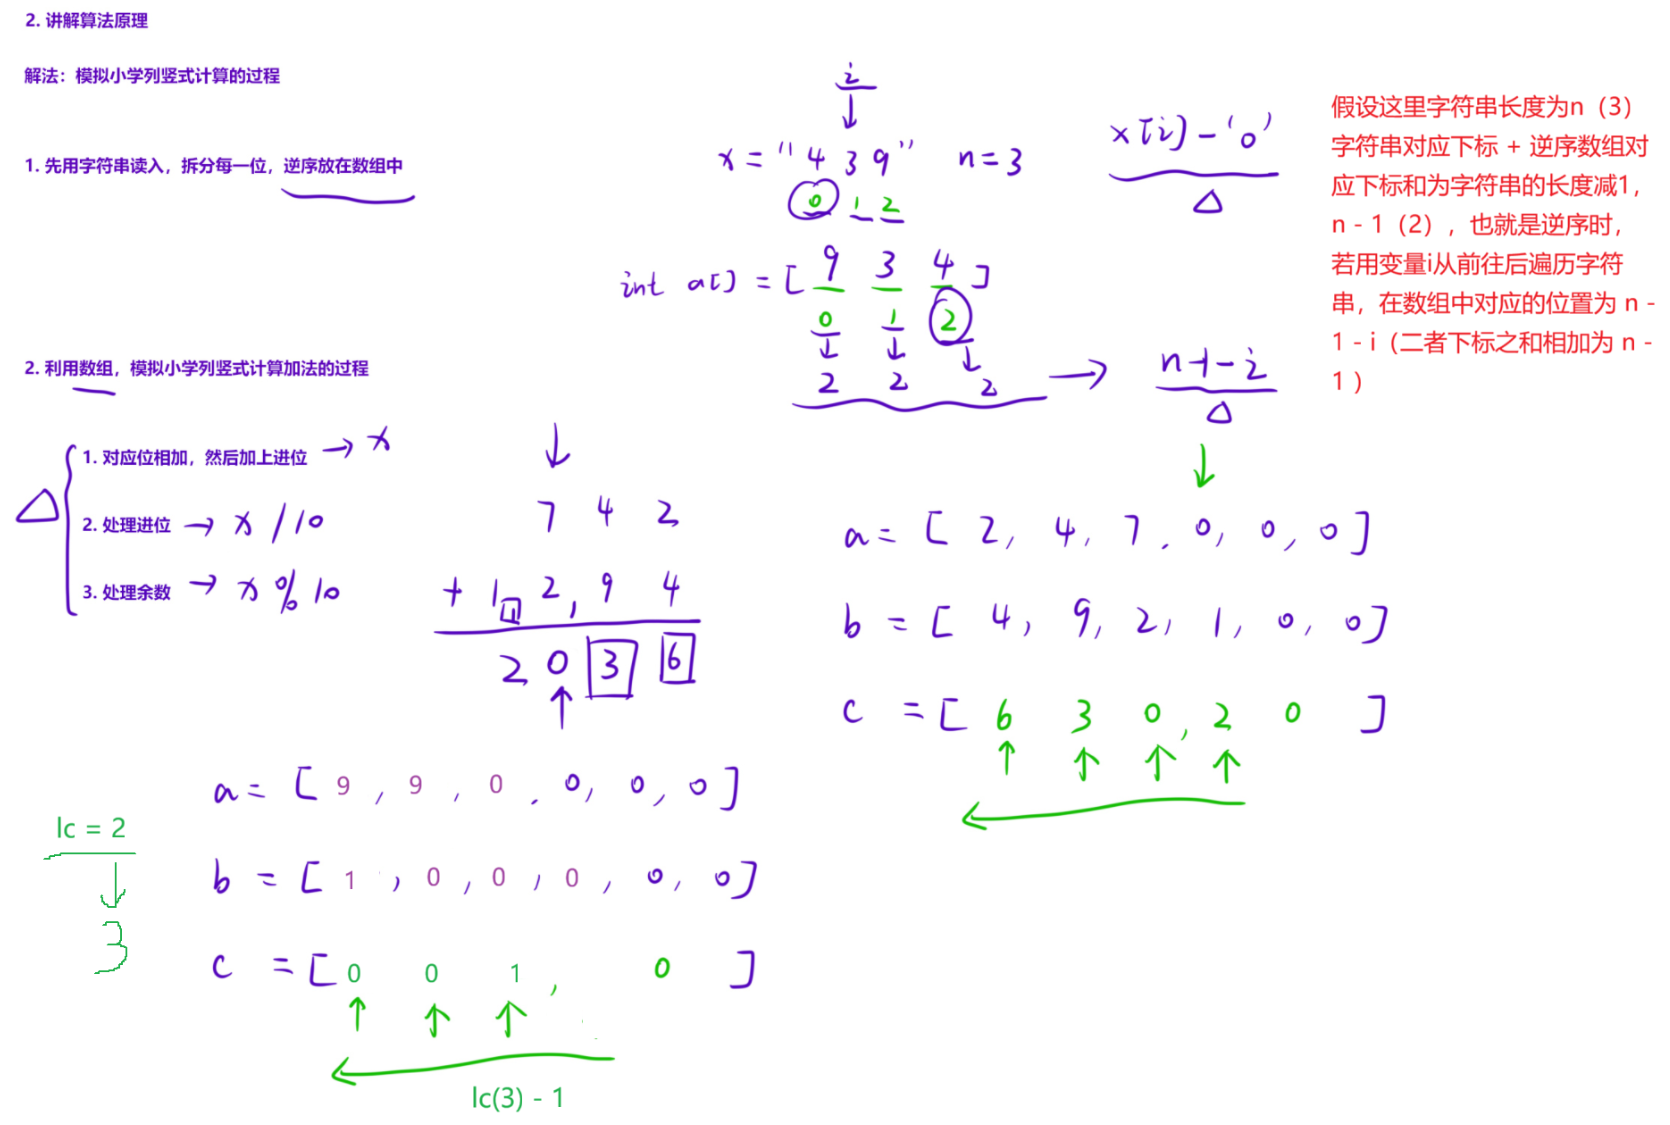 2. 讲解算法原理
解法：模拟小学列竖式计算的过程
1. 先用字符串读入，拆分每一位，逆序放在数组中
i
x = "4 3 9" n = 3
0 1 2
int a[] = [ 9 3 4 ]
0 1 2
2 2 2
x[i] - '0'
n-1-i
假设这里字符串长度为n（3）
字符串对应下标 + 逆序数组对
应下标和为字符串的长度减1，
n - 1（2），也就是逆序时，
若用变量i从前往后遍历字符
串，在数组中对应的位置为 n -
1 - i（二者下标之和相加为 n -
1 ）
2. 利用数组，模拟小学列竖式计算加法的过程
1. 对应位相加，然后加上进位 → x
2. 处理进位 → x / 10
3. 处理余数 → x % 10
7 4 2
+ 1 1 2, 9 4
2 0 3 6
a = [ 2, 4, 7, 0, 0, 0 ]
b = [ 4, 9, 2, 1, 0, 0 ]
c = [ 6 3 0, 2 0 ]
a = [ 9 , 9 , 0 , 0, 0, 0 ]
b = [ 1 , 0 , 0 , 0 , 0, 0 ]
c = [ 0 0 1 , 0 ]
lc = 2
3
lc(3) - 1